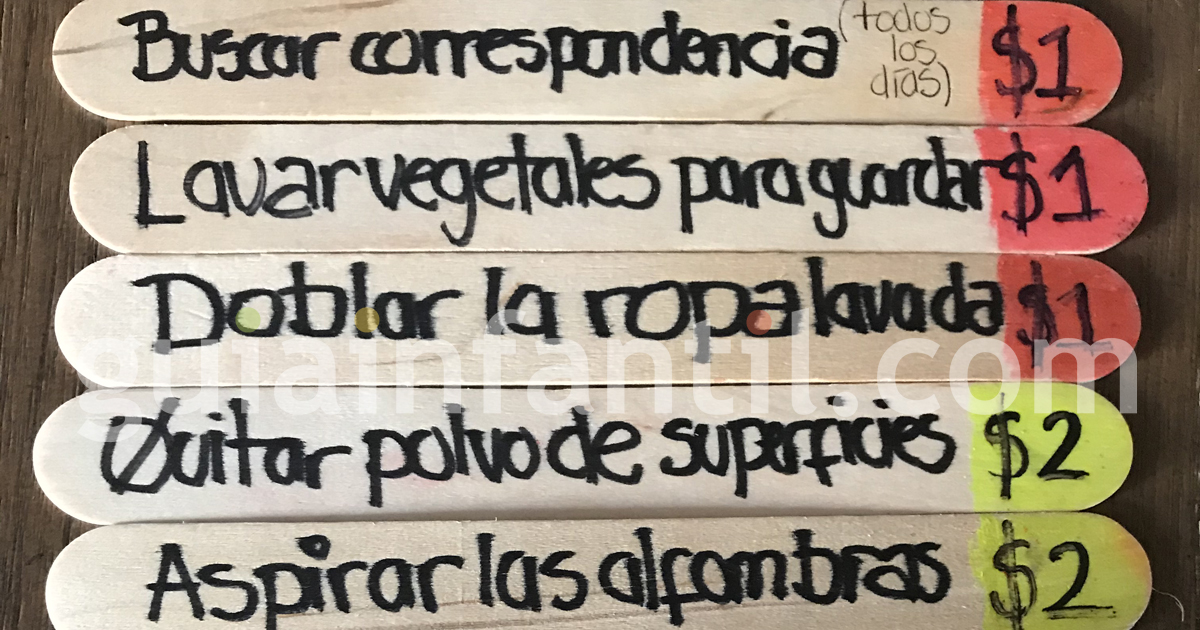 Buscar correspondencia (todos los días) $1
Lavar vegetales para guardar $1
Doblar la ropa lavada $1
Quitar polvo de superficies $2
Aspirar las alfombras $2
guiainfantil.com